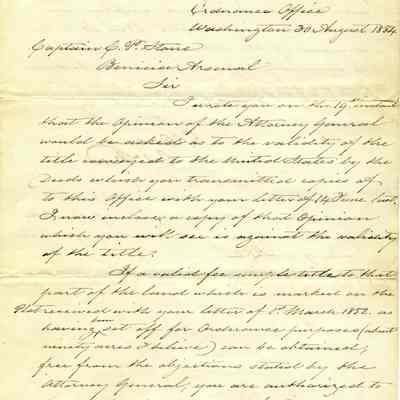 Ordnance Office
Washington 30 August 1854
Captain C. P. Stone
Benicia Arsenal
Sir
I wrote you on the 19th instant
that the Opinion of the Attorney General
would be asked as to the validity of the
title conveyed to the United States by the
Deeds which you transmitted copies of
to this Office with your letter of 14 June last.
I now enclose a copy of that Opinion
which you will see is against the validity
of the title.
If a valid fee simple title to that
part of the land which is marked on the
Plat received with your letter of 1st March 1852 as
having been set off for Ordnance purposes (about
ninety acres I believe) can be obtained,
free from the objections stated by the
Attorney General, you are authorized to